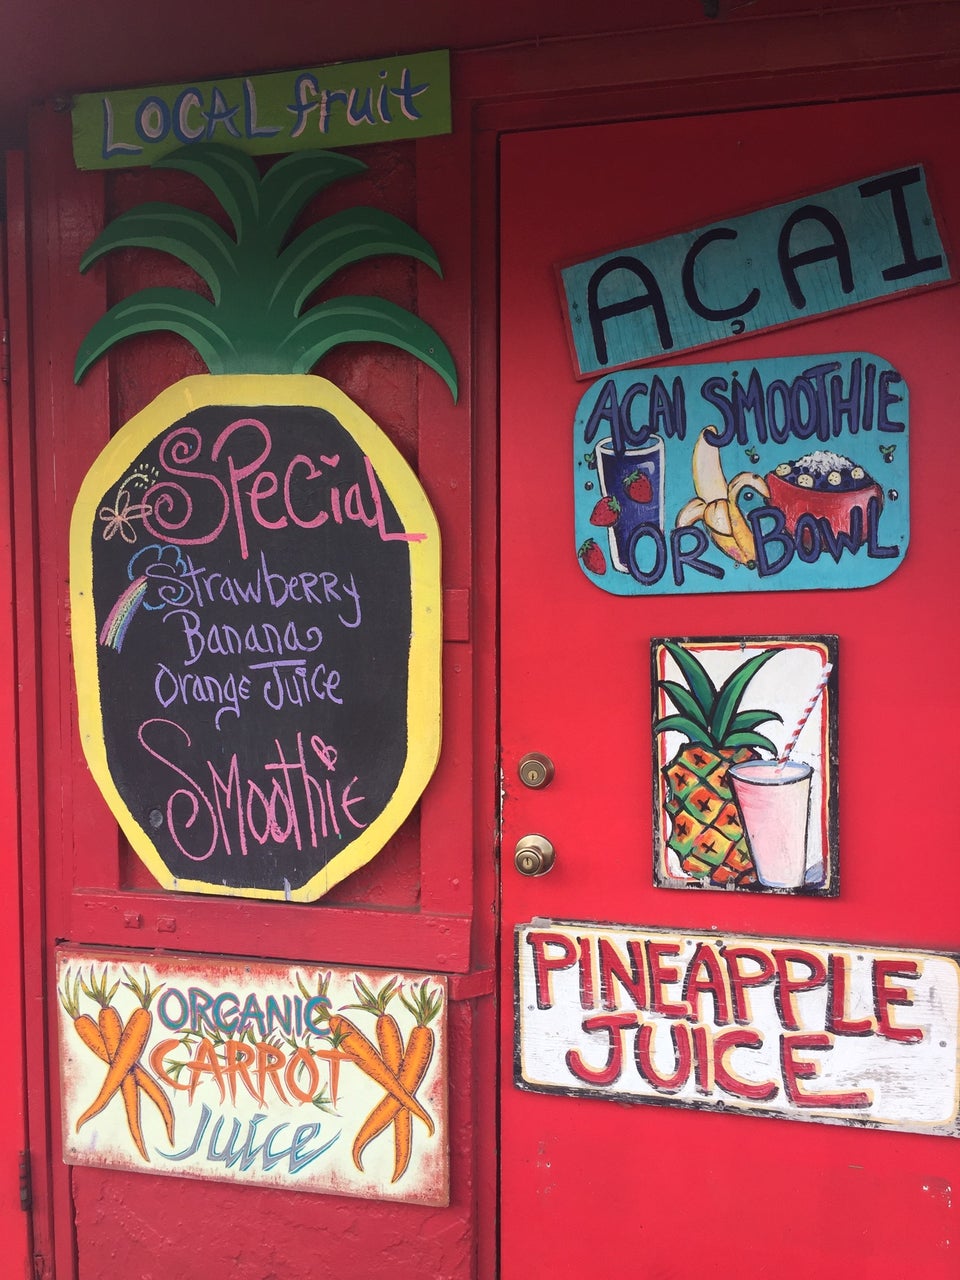 LOCAL fruit
SPeCiaL
Strawberry
Banana
Orange Juice
Smoothie
ORGANIC
CARROT
Juice
AÇAI
AÇAI SMOOTHIE
OR BOWL
PINEAPPLE
JUICE